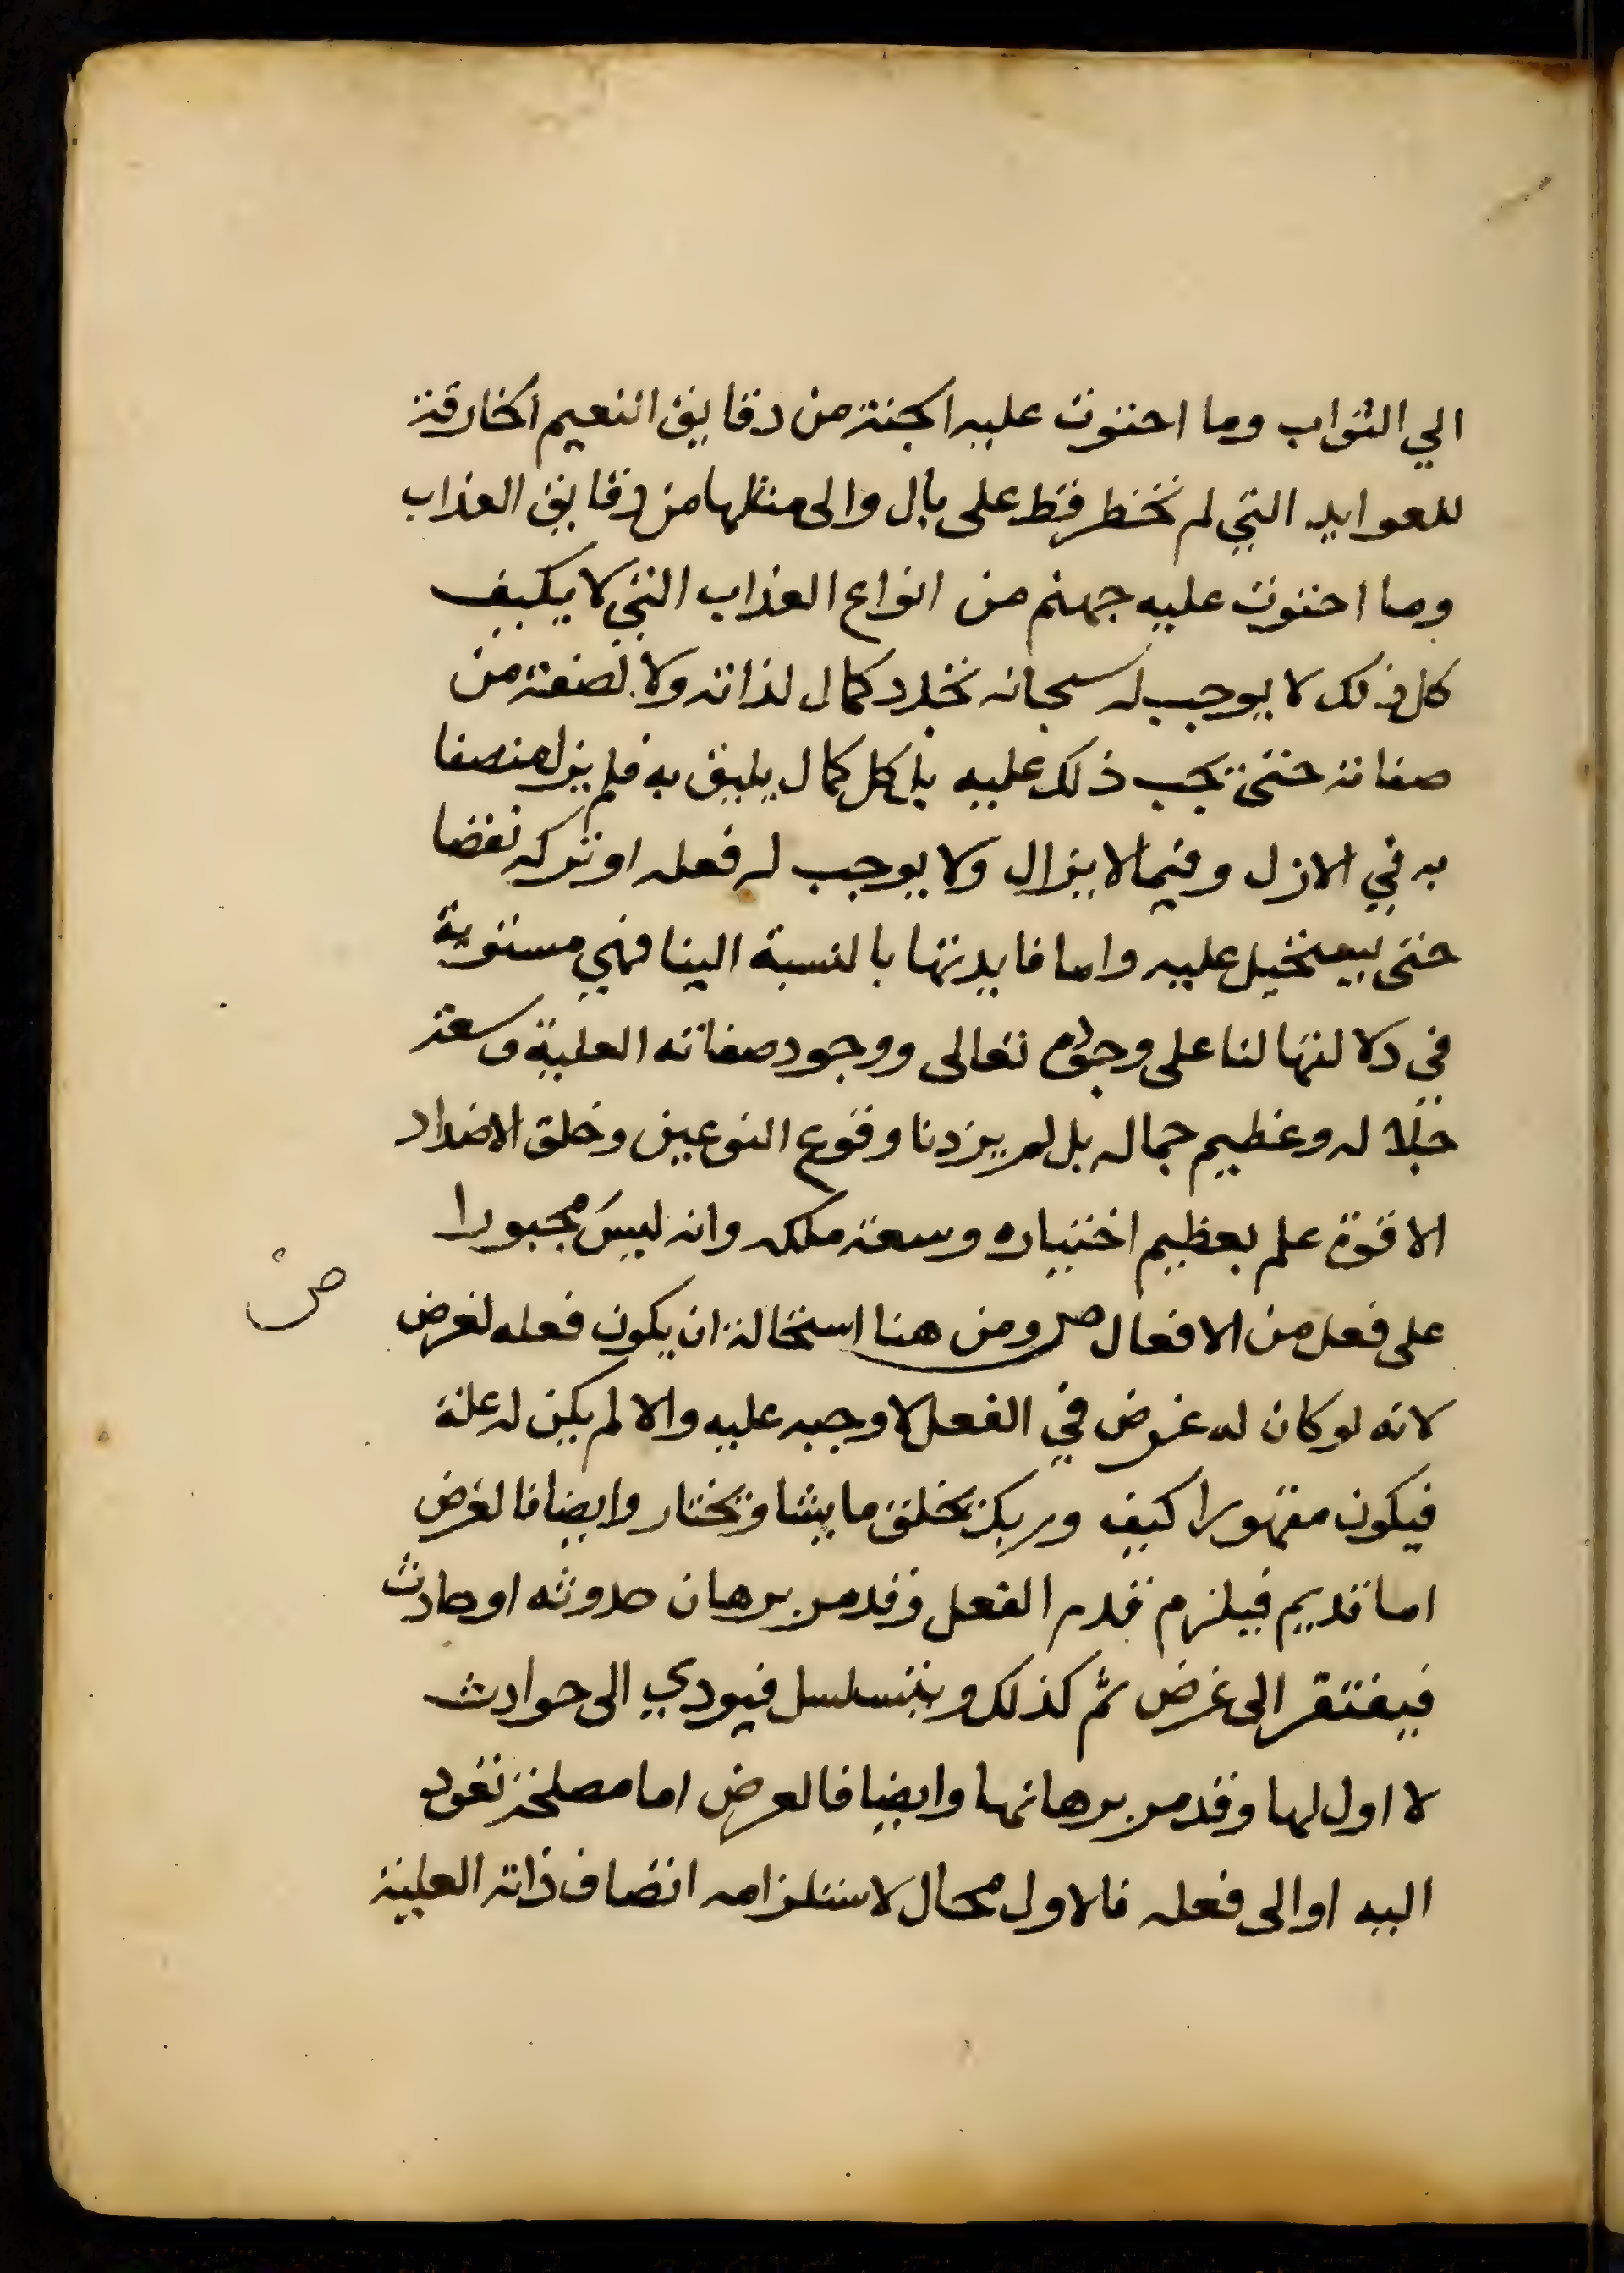 الي الثواب وما احتوت عليه الجنة من دقايق النعيم الخارقة
للعوايد التي لم تخطر قط على بال والى مثلها من دقايق العذاب
وما احتوت عليه جهنم من انواع العذاب التي لا يكيف
كل ذلك لا يوجب له سبحانه تجدد كمال لذاته ولا لصفة من
صفاته حتى يجب ذلك عليه بل كل كمال يليق به فلم يزل متصفا
به في الازل وفيما لا يزال ولا يوجب له فعله او تركه نقصا
حتى يستحيل عليه واما فايدتها بالنسبة الينا فهي مستوية
في دلالتها لنا على وجوده تعالى ووجود صفاته العلية وسعة
جلاله وعظيم جماله بل لم يزدنا وقوع النوعين وخلق الاضداد
الا قوة علم بعظيم اختياره وسعة ملكه وانه ليس مجبورا
على فعل من الافعال ص ومن هنا استحالة ان يكون فعله لغرض
ص
لانه لو كان له غرض في الفعل لاوجبه عليه والا لم يكن له علة
فيكون مقهورا كيف وربك يخلق ما يشا ويختار وايضا فالغرض
اما قديم فيلزم قدم الفعل وقد مر برهان حدوثه او حادث
فيفتقر الى غرض ثم كذلك ويتسلسل فيودي الى حوادث
لا اول لها وقد مر برهانها وايضا فالعرض اما مصلحة تعود
اليه او الى فعله فالاول محال لاستلزامه اتصاف ذاته العلية